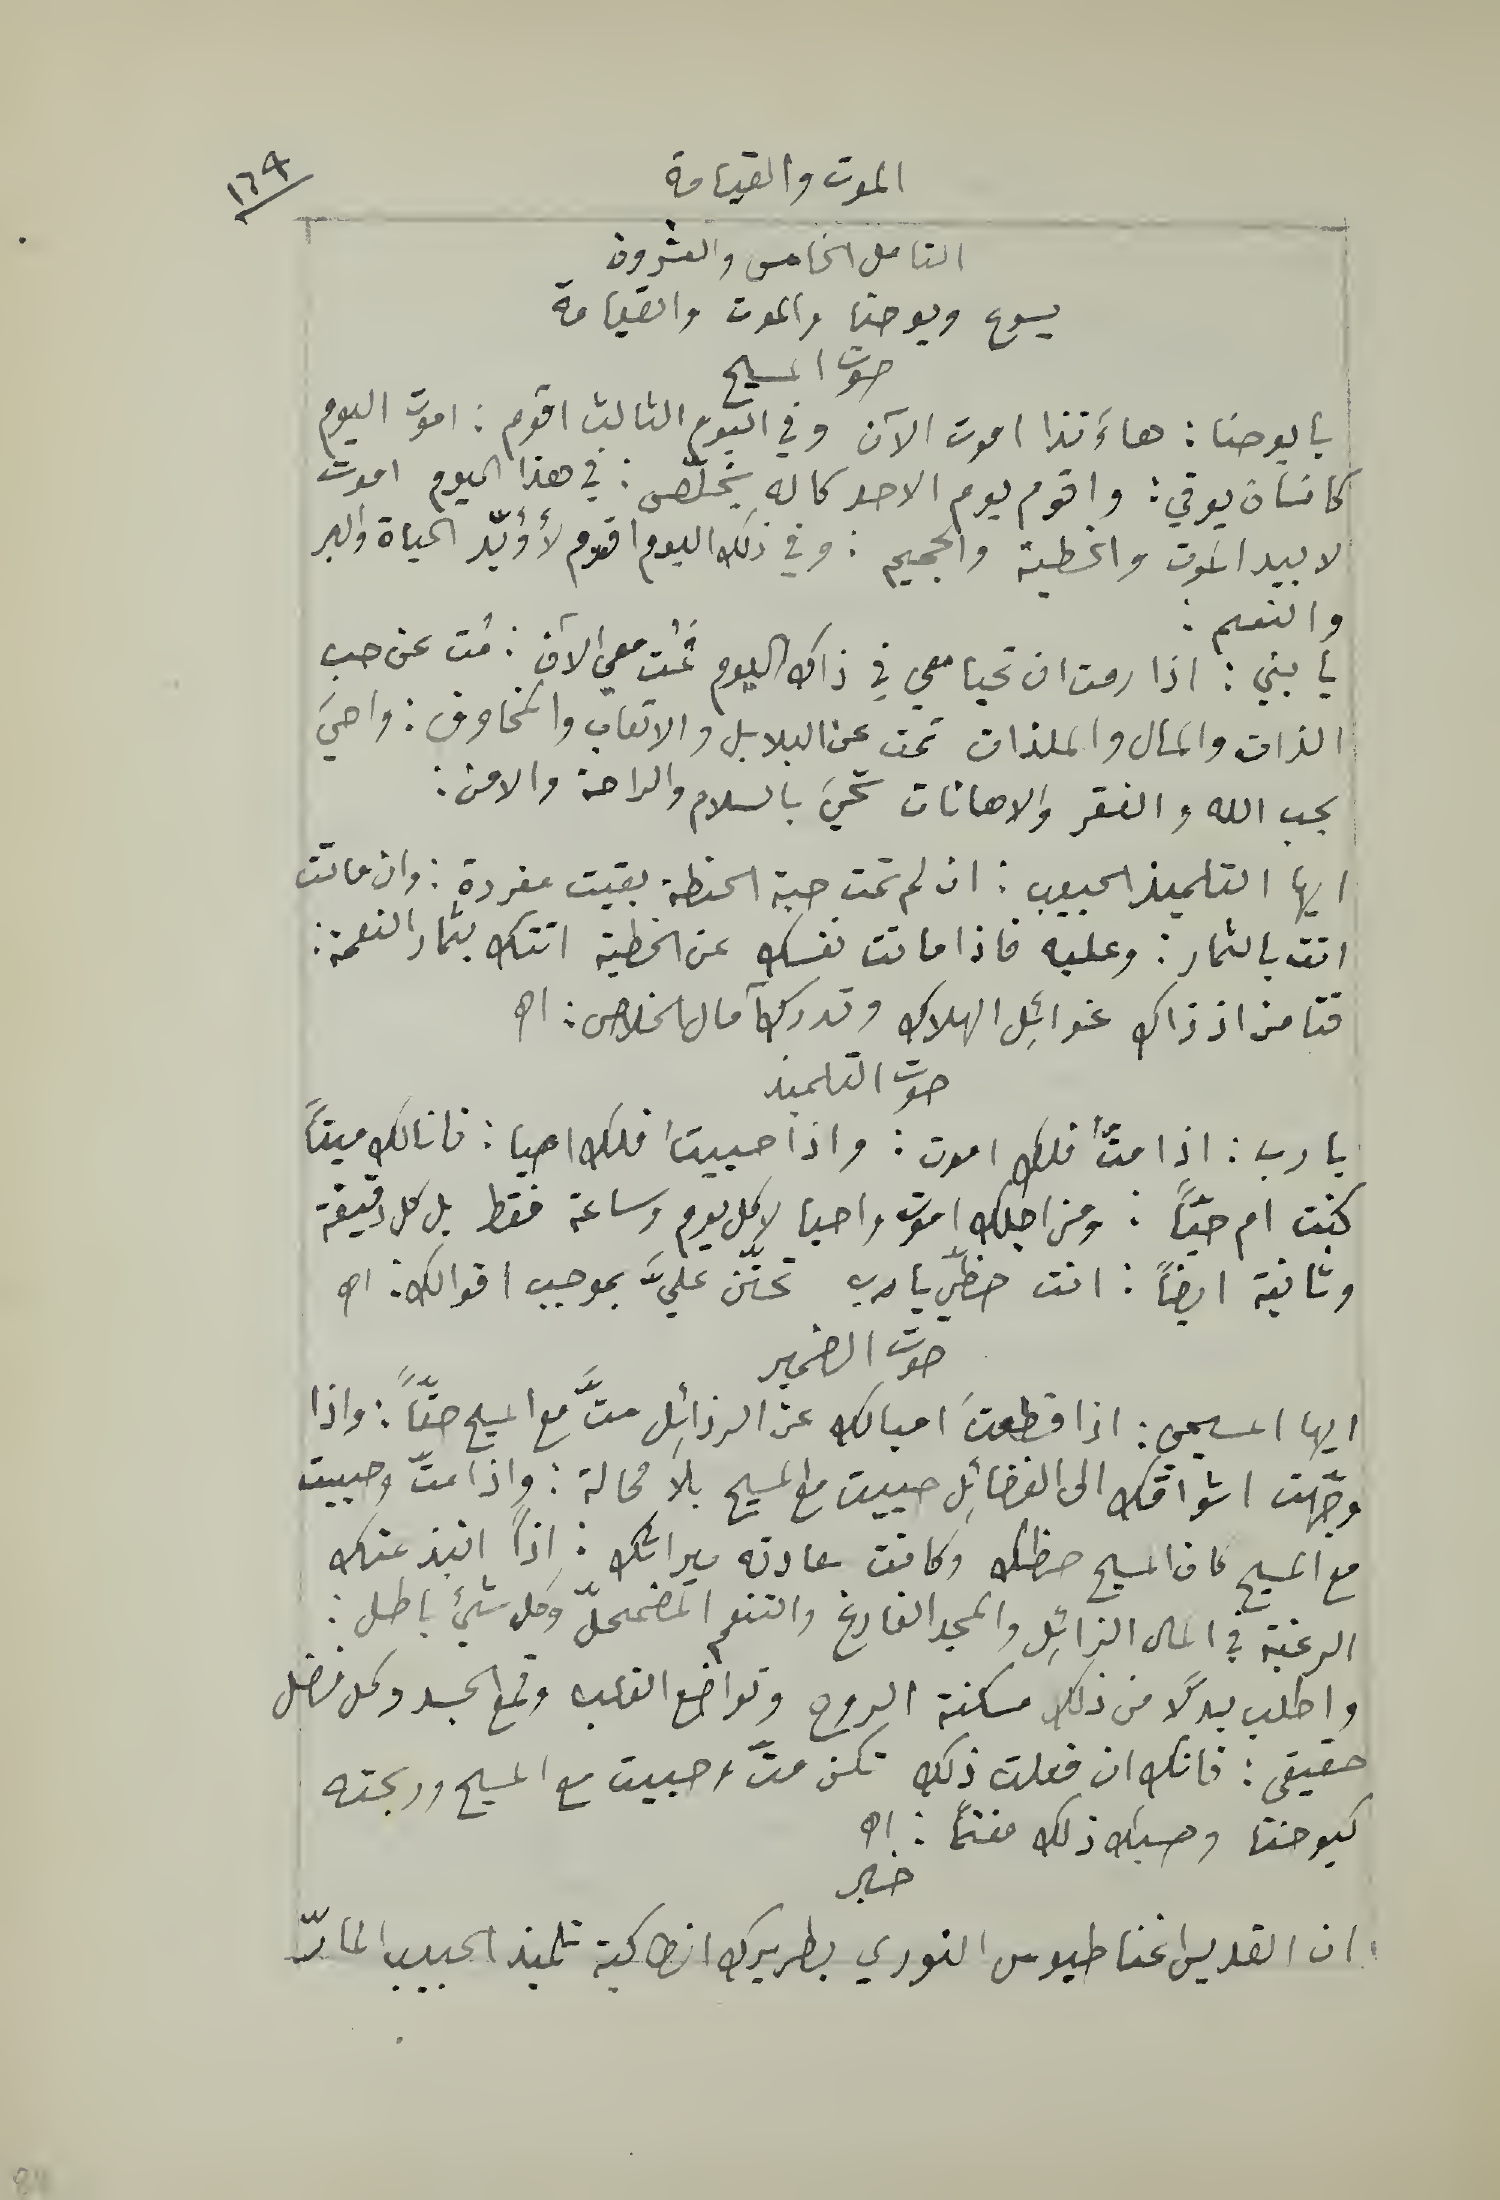 ١٦٩
الموت والقيامة
التامل الخامس والعشرون
يسوع ويوحنا والموت والقيامة
صوت المسيح
يا يوحنا : هاءَنذا اموت الآن وفي اليوم الثالث اقوم : اموت اليوم
كانسان يوفي : واقوم يوم الاحد كاله يخلّص : في هذا اليوم اموت
لابيد الموت والخطية والجحيم : وفي ذلك اليوم اقوم لأؤيّد الحياة والبر
والنعيم :
يا بني : اذا رمت ان تحيا معي في ذاك اليوم فمُت معي الآن : مُت عن حب
الذات والمال والملذات تمت عن البلابل والاتعاب والمخاوف : واحيَ
بحب الله والفقر والاهانات تحيَ بالسلام والراحة والامن :
ايها التلميذ الحبيب : ان لم تمت حبة الحنطة بقيت مفردة : وان ماتت
اتت بالثمار : وعليه فاذا ماتت نفسك عن الخطية اتتك بثمار النعمة :
فتأمن اذ ذاك غوائل الهلاك وتدرك آمال الخلاص : اه
صوت التلميذ
يا رب : اذا متُّ فلك اموت : واذا حييتُ فلك احيا : فانا لك ميتاً
كنت ام حيّاً : ومن اجلك اموت واحيا لا كل يوم وساعة فقط بل كل دقيقة
وثانية ايضاً : انت حظّي يا رب تحنّن عليَّ بموجب اقوالك : اه
صوت الضمير
ايها المسيحي : اذا قطعتَ اميالك عن الرذائل متَّ مع المسيح حقّاً : واذا
وجّهت اشواقك الى الفضائل حييت مع المسيح بلا محالة : واذا متّ وحييت
مع المسيح كان المسيح حظك وكانت سعادته ميراثك : اذاً انبذ عنك
الرغبة في المال الزائل والمجد الفارغ والتنعم المضمحلّ وكل شيءٍ باطل :
واطلب بدلًا من ذلك مسكنة الروح وتواضع القلب وقمع الجسد وكل فضل
حقيقي : فانك ان فعلت ذلك تكن متّ وحييت مع المسيح وربحته
كيوحنا وحسبك ذلك مغنمًا : اه
خبر
ان القديس اغناطيوس النوري بطريرك انطاكية تلميذ الحبيب المارّ